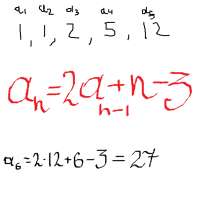 a₁ a₂ a₃ a₄ a₅
1, 1, 2, 5, 12
aₙ=2aₙ₋₁+n-3
a₆=2·12+6-3=27